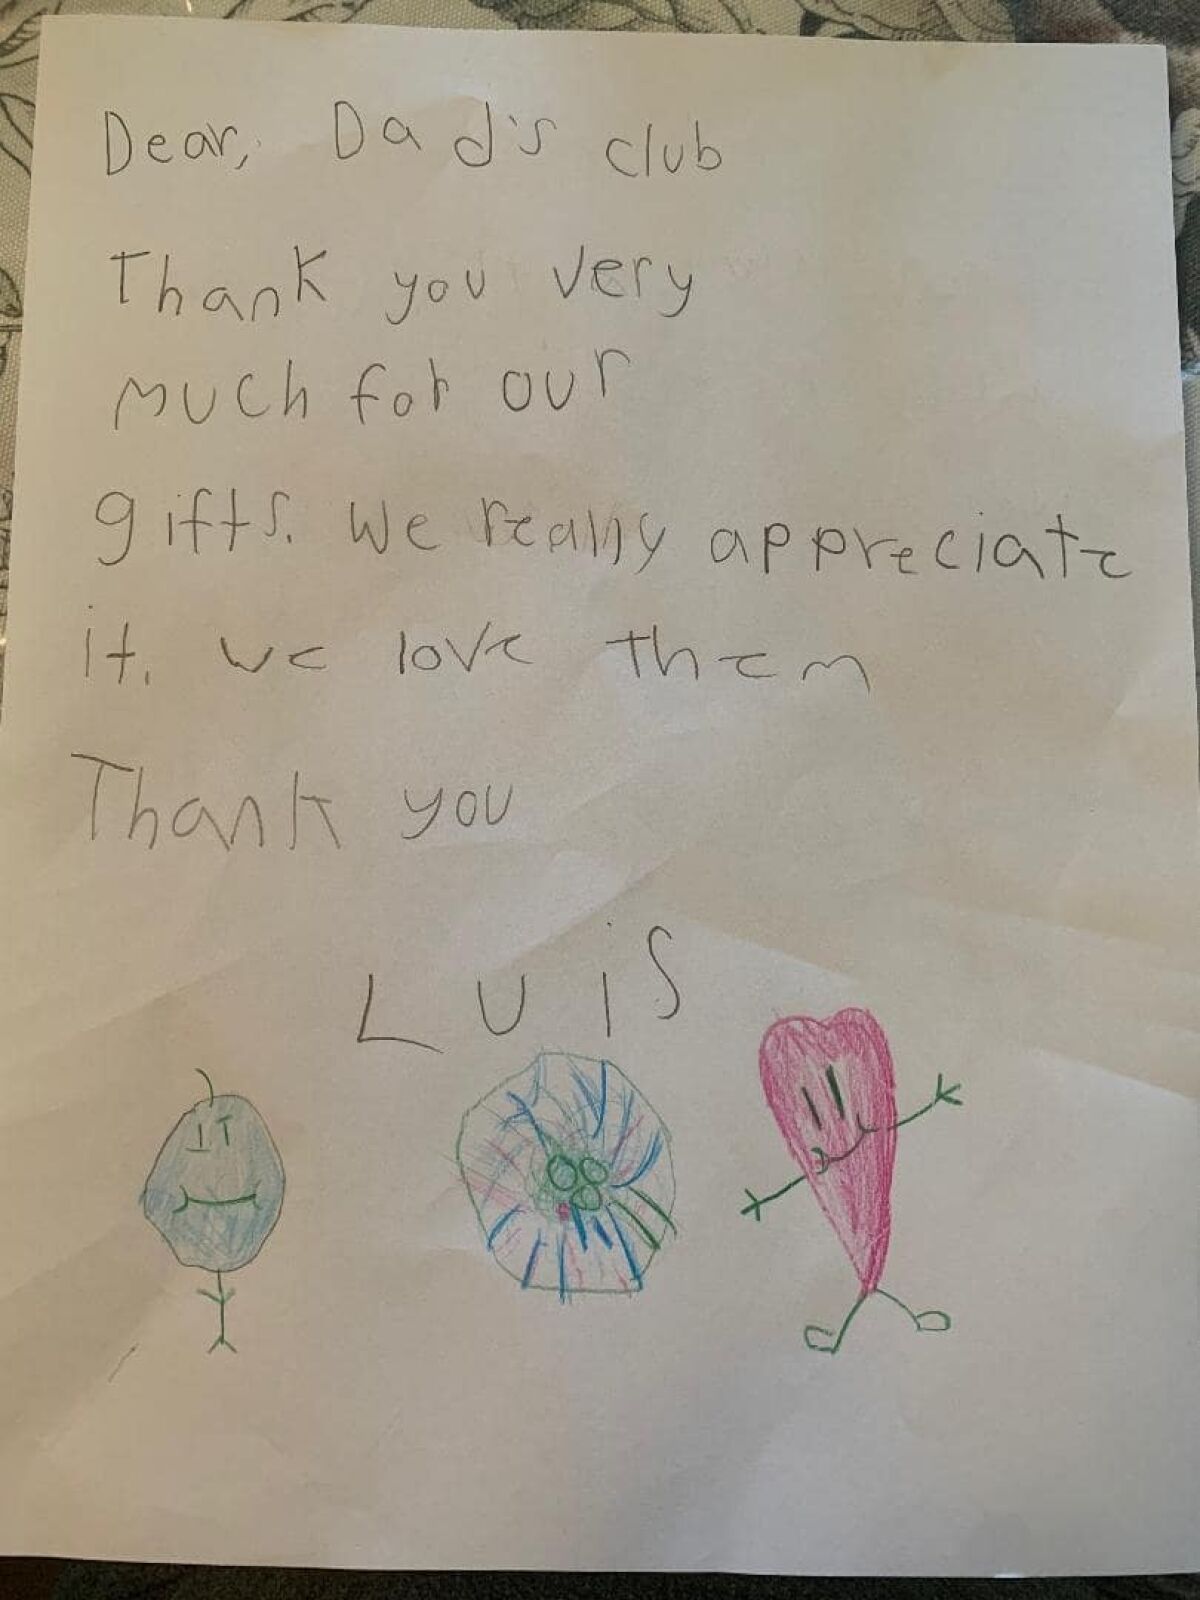 Dear, Dad's club
Thank you very
much for our
gifts. We really appreciate
it. we love them
Thank you
Luis